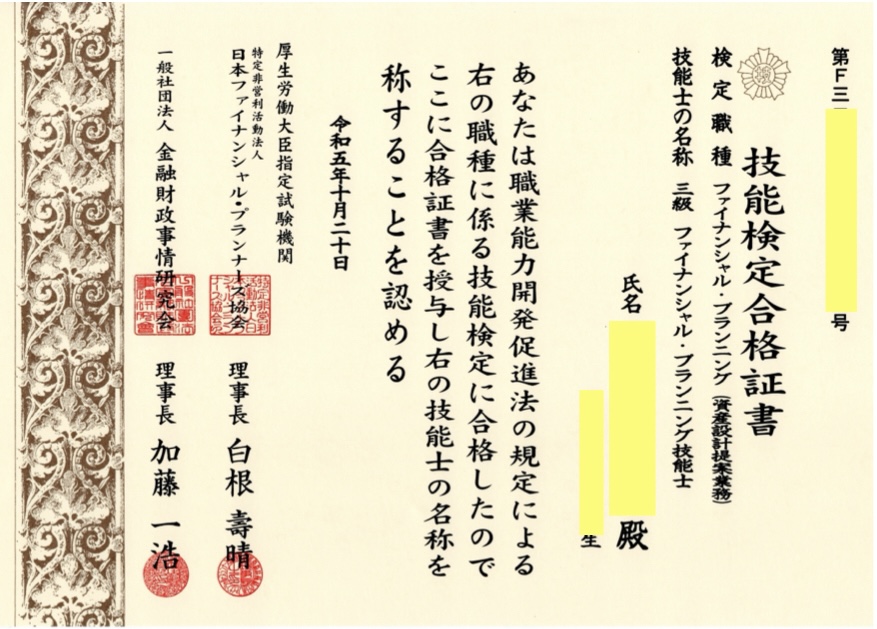 第F三
号
技能検定合格証書
検定職種 ファイナンシャル・プランニング(資産設計提案業務)
技能士の名称 三級 ファイナンシャル・プランニング技能士
氏名 殿
生
あなたは職業能力開発促進法の規定による
右の職種に係る技能検定に合格したので
ここに合格証書を授与し右の技能士の名称を
称することを認める
令和五年十月二十日
厚生労働大臣指定試験機関
特定非営利活動法人
日本ファイナンシャル・プランナーズ協会 理事長 白根壽晴
一般社団法人 金融財政事情研究会 理事長 加藤一浩